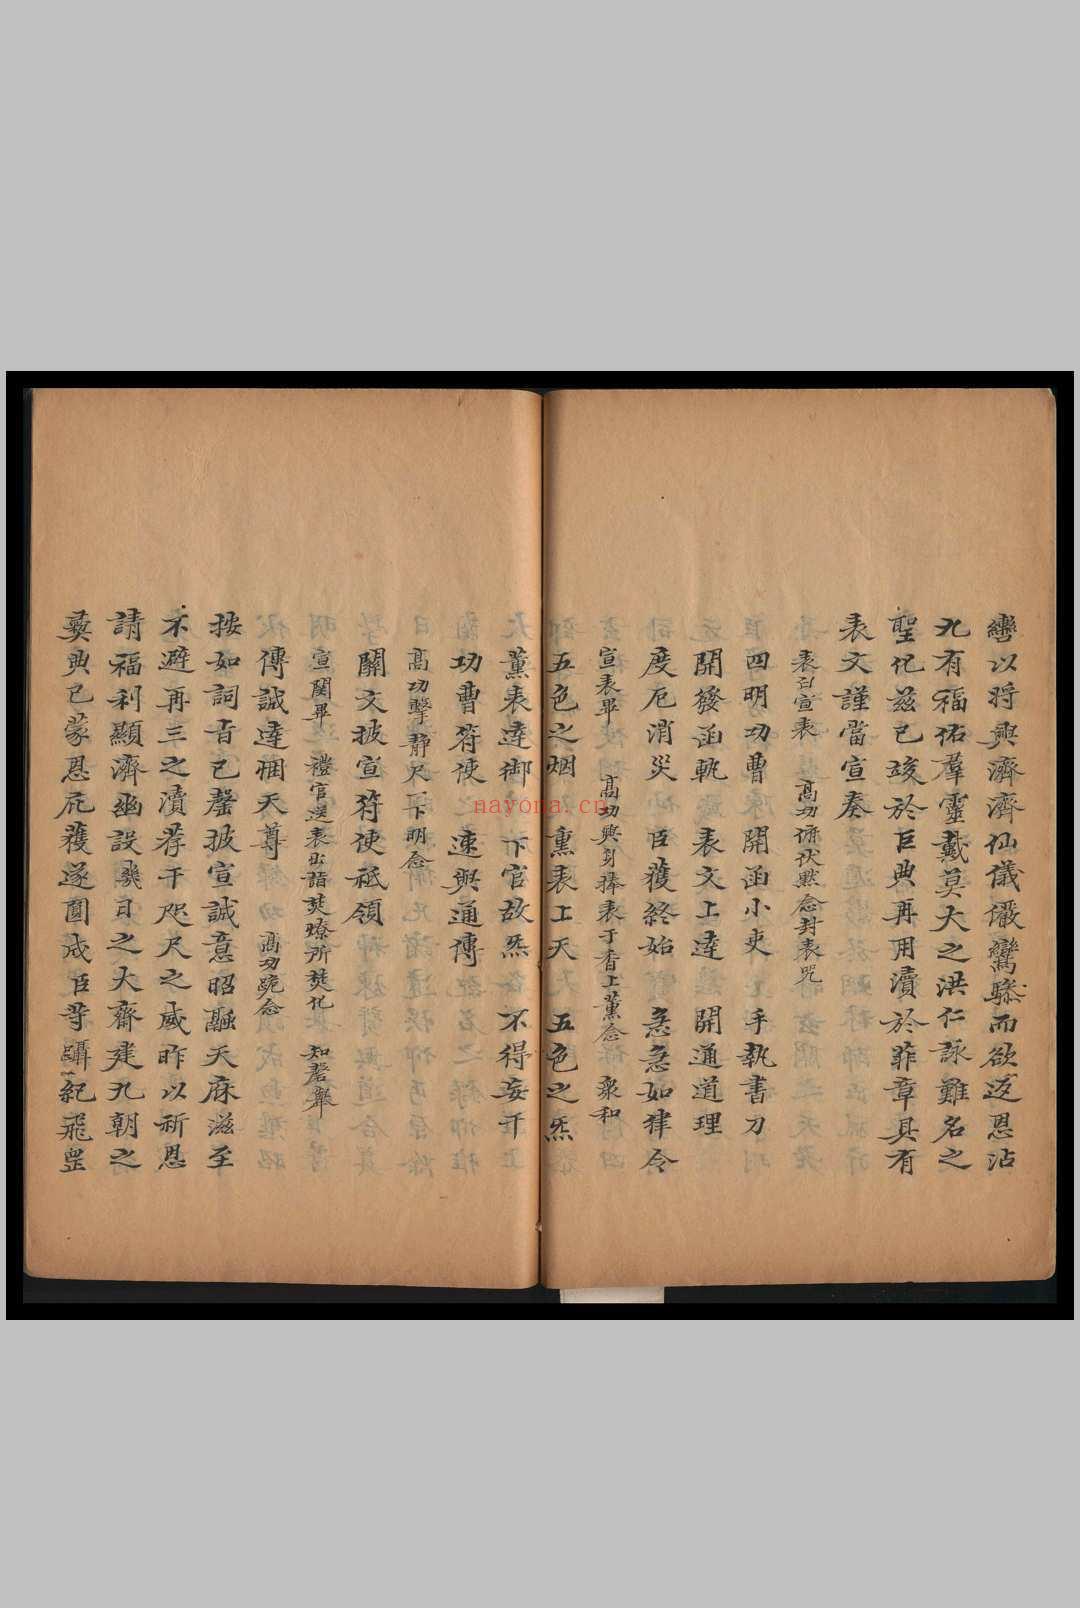 鸞以將興濟濟仙儀儼鸞驂而欲返恩沾
九有福佑羣靈戴莫大之洪仁詠難名之
聖化茲已竣於巨典再用瀆於菲章具有
表文謹當宣奏
表白宣表 高功俯伏默念封表咒
四明功曹 開函小吏 手執書刀
開發函軌 表文上達 開通道理
度厄消災 臣獲終始 急急如律令
宣表畢 高功興身捧表于香上薰念 衆和
五色之烟 薰表上天 五色之炁
薰表達御 下官故炁 不得妄干
功曹符使 速與通傳
高功擊靜尺一下明念
關文披宣符使祗領
宣関畢 禮官送表出詣焚燎所焚化 知磬舉
傳誠達悃天尊 高功跪念
按如詞旨已罄披宣誠意昭融天庥滋至
不避再三之瀆荐干咫尺之威昨以祈恩
請福利顯濟幽設幾日之大齋建九朝之
奠典已蒙恩庇獲遂圓成臣等躡紀飛罡
nayona.cn